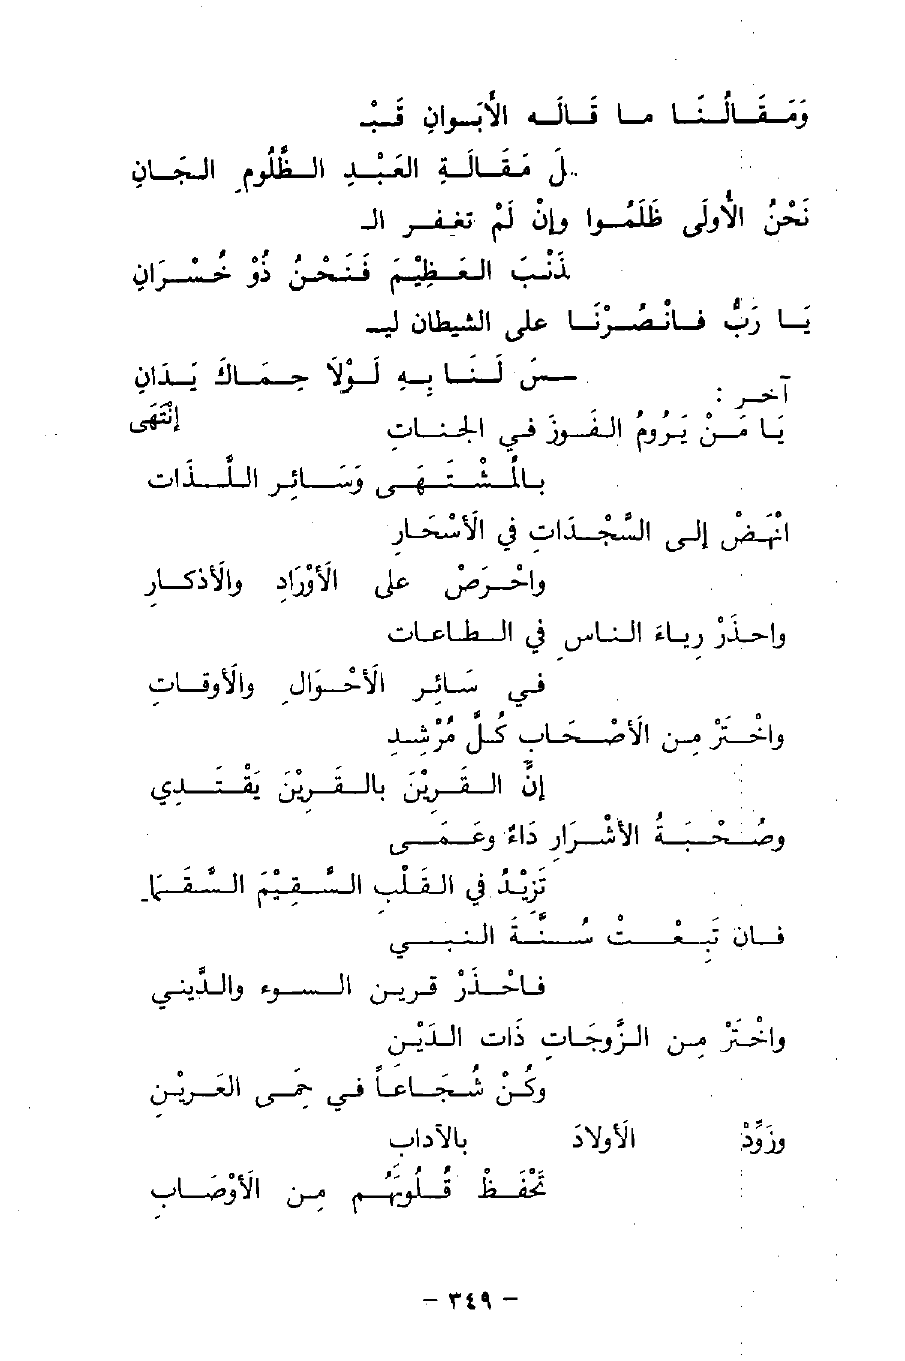 وَمَقَالُنَا ما قَالَه الأَبَوانِ قَبْـ
ـلَ مَقَالَةِ العَبْدِ الظَّلُومِ الجَانِ
نَحْنُ الأُولَى ظَلَمُوا وإنْ لَمْ تغفر الـ
ذَنْبَ العَظِيْمَ فَنَحْنُ ذُوْ خُسْرَانِ
يَا رَبُّ فانْصُرْنَا على الشيطان ليـ
ـسَ لَنَا بِهِ لَوْلَا حِمَاكَ يَدَانِ
آخر :
إنْتَهَى
يَا مَنْ يَرُومُ الفَوزَ في الجنات
بالمُشْتَهَى وَسَائِر اللَّذَات
انْهَضْ إلى السَّجْدَاتِ في الأَسْحَار
واحْرَصْ على الأَوْرَادِ والأَذكار
واحذَرْ رِياءَ الناسِ في الطاعات
في سَائِر الأَحْوَالِ والأَوقات
واخْتَرْ مِن الأَصْحَاب كُلَّ مُرْشدِ
إنَّ القَرِيْنَ بالقَرِيْنَ يَقْتَدِي
وصُحْبَةُ الأشْرَار دَاءٌ وعَمَى
تَزِيْدُ في القَلْبِ السَّقِيْمَ السَّقَمَا
فان تَبِعْتْ سُنَّةَ النبي
فاحْذَرْ قرين السوء والدَّنِي
واخْتَرْ مِن الزَّوجَاتِ ذَات الدَيْن
وكُنْ شُجَاعاً في حِمَى العَرِيْن
وزَوِّدْ الأَولادَ بالآداب
تَحْفَظْ قُلوبَهُم مِن الأَوْصَاب
- ٣٤٩ -